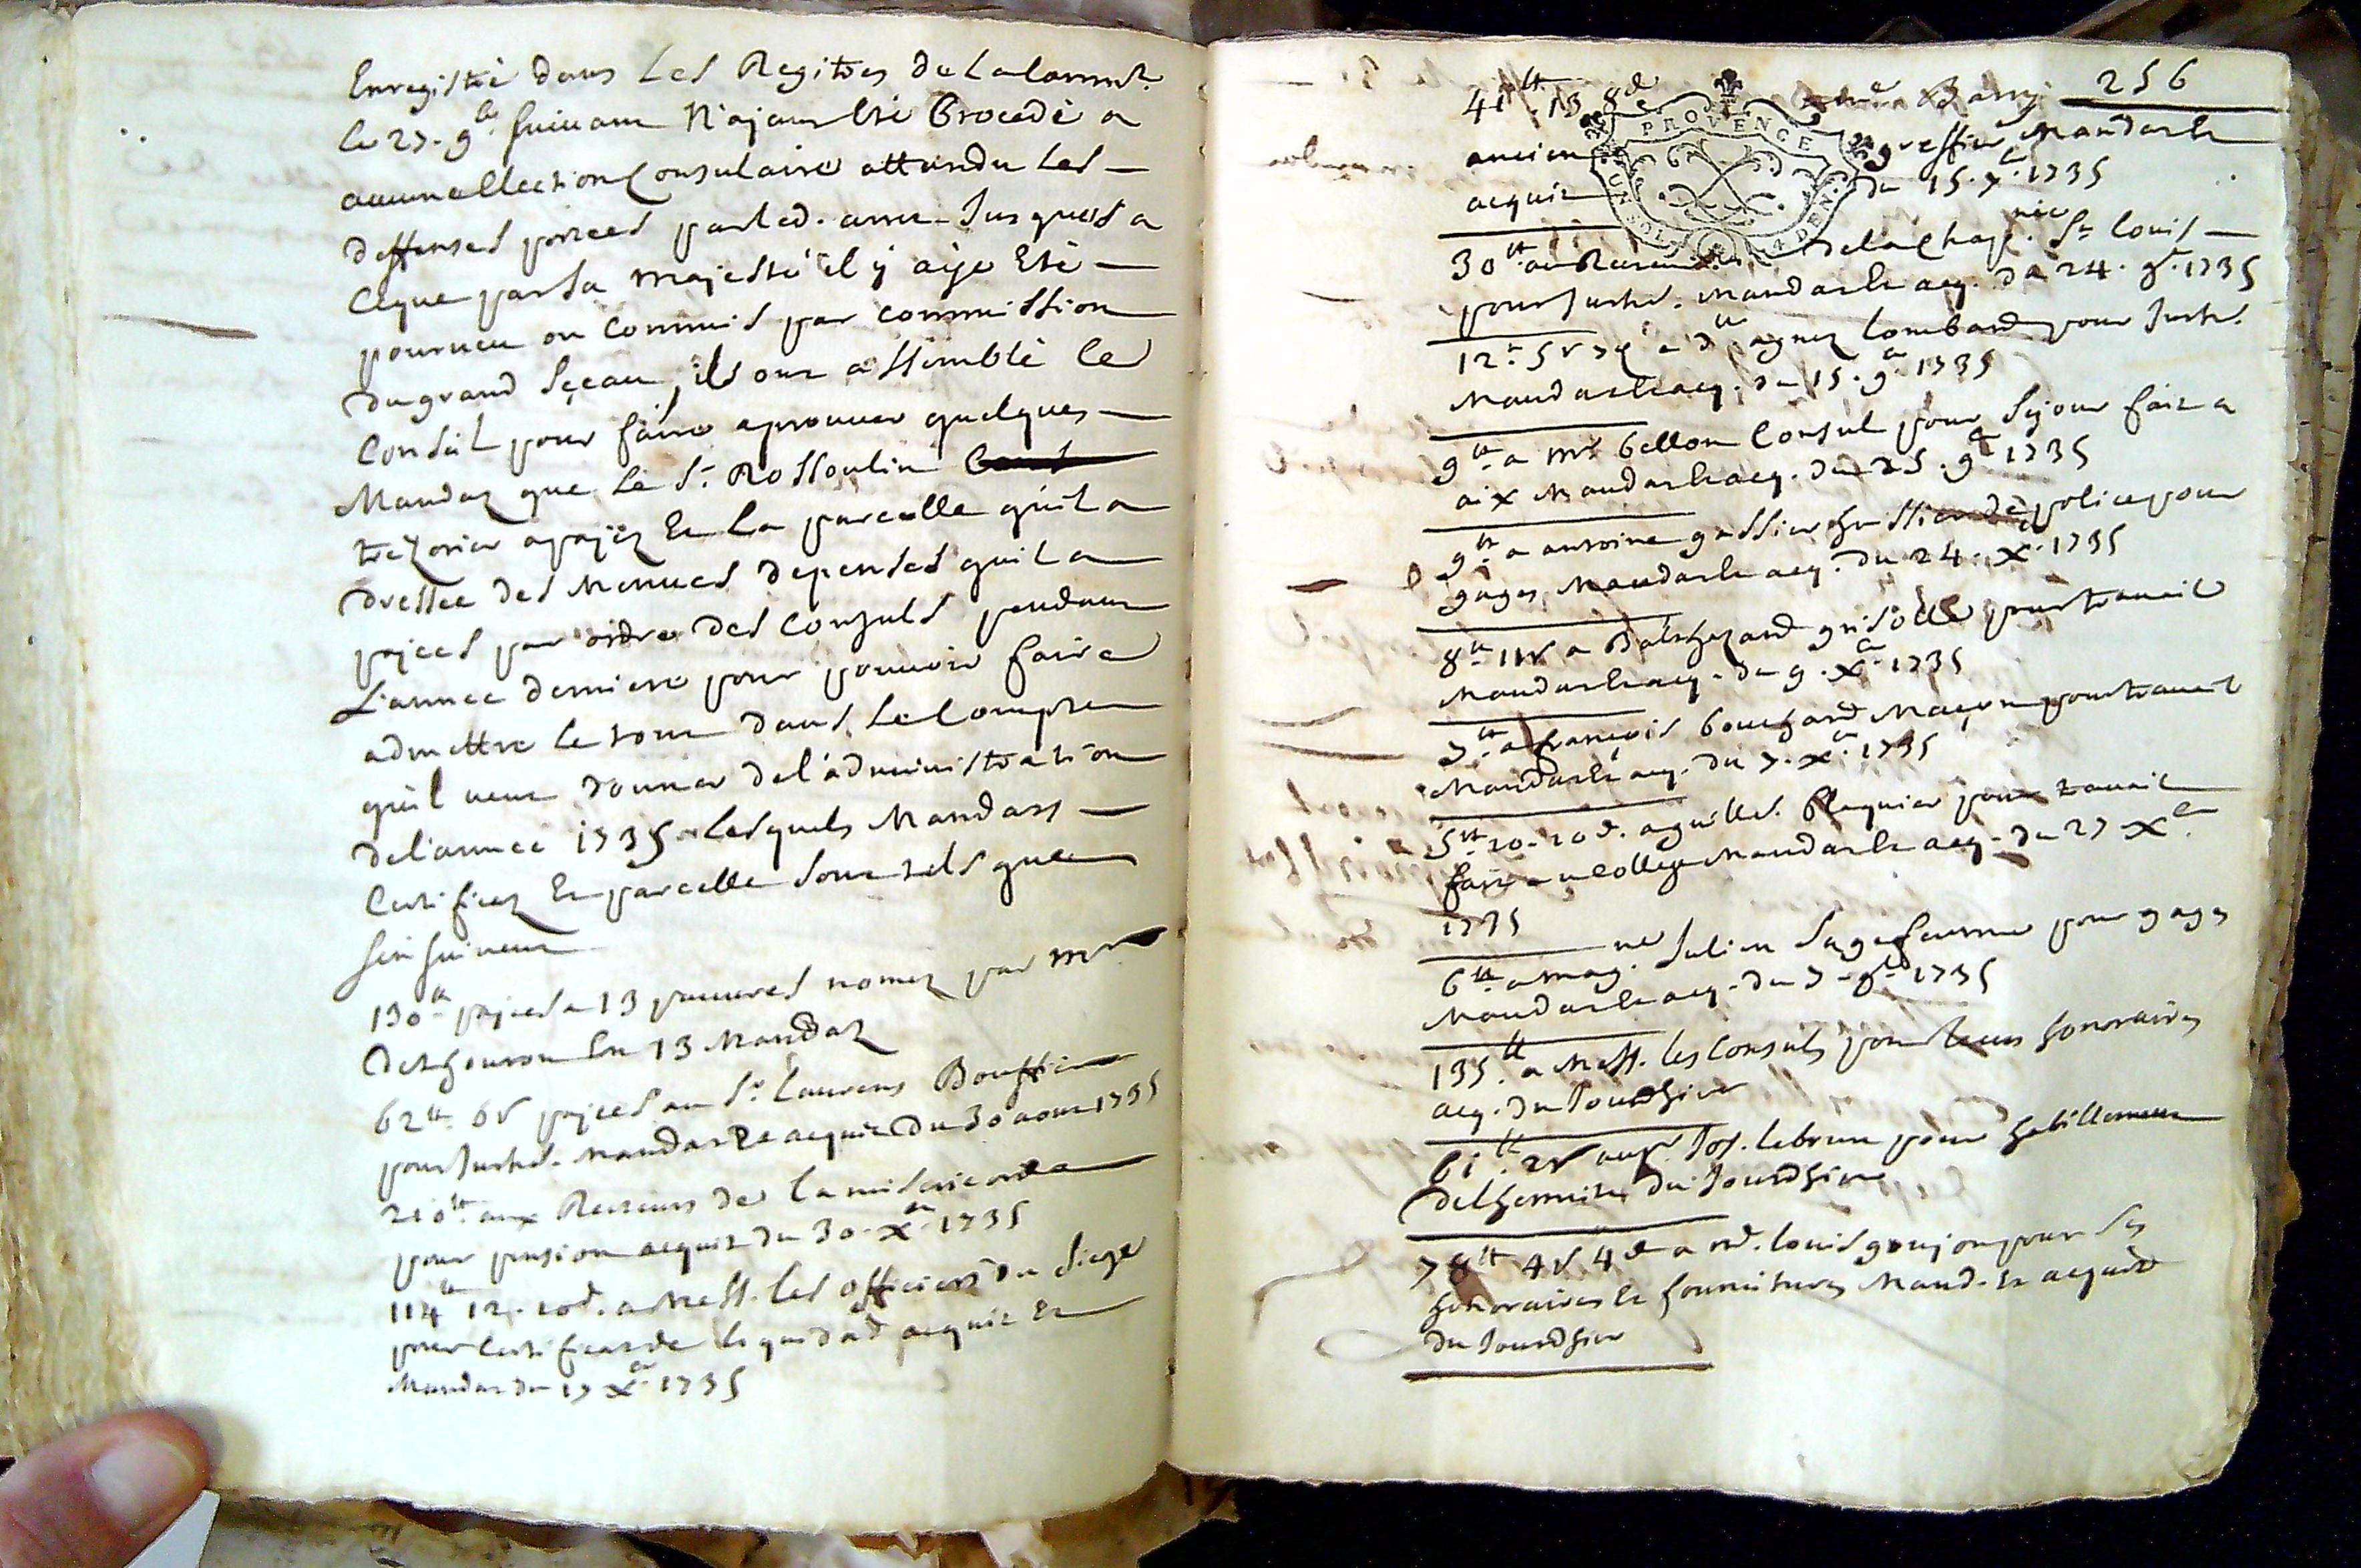 Enregistré dans Les Regitres de La Commté
le 27. 9bre suivant N'ajant Eté Procedé a
aucune Ellection Consulaire attandu Les
deffenses portees par led. arret Jusques a
ce que par sa majesté il y aije Eté
pourveu ou Commis par commission
du grand sceau, ils ont assemblé le
Conseil pour faire aprouver quelques
Mandaz que Le Sr. Rossoulin
trezorier a pajéz Et La parcelle qu'il a
dressee des Menues depenses qu'il a
pajees par ordre des Consuls pendant
L'annee derniere pour pouvoir faire
admettre le tout dans Le Compte
qu'il veut donner de l'administration
de l'année 1735 Lesquels Mandats
Certificaz Et parcelle sont tels que
sensuivent
130tt pajees a 13 pauvres nomez par Mr
13 Mandaz
62tt 6s pajees au Sr. Laurens Bouffier
pour Intts. Mandat Et acquit du 30 aout 1735
210tt aux Recteurs de La misericorde
pour pension acquit du 30. Xbre 1735
114tt 12. 10d. a Mess. Les officiers du Siege
pour Certificat de acquit Et
Mandat du 17 Xbre 1735
256
41tt 13 8d Barry
ancien greffier Mandat Et
acquit du 15. 7bre 1735
PROVENCE
30tt au Recteur de la Chapnie St Louis
pour Intts. Mandat Et acq. du 24. 9bre 1735
12tt 5s 7d a dlle agnez Lombard pour Intts.
Mandat Et acq. du 15. 9bre 1735
9tt a Mr Bellon Consul pour Sejour fait a
aix Mandat Et acq. du 25. 9bre 1735
9tt a antoine gassier huissier de police pour
gages Mandat Et acq. du 24. Xbre 1735
8tt 11s a Balthezard grisolle pour travail
Mandat Et acq. du 9. Xbre 1735
7tt a françois Bouchard Maçon pour travail
Mandat Et acq. du 7. Xbre 1735
5tt 10. 10d. a guille. Blaquier pour travail
fait au College Mandat Et acq. du 27 Xbre
1735
6tt a Magne Julien Sage femme pour gages
Mandat Et acq. du 7 - 1735
135tt a Mess. les Consuls pour leurs honoraires
acq. du Jourdhier
61tt 2s au Sr Jos. Lebrun pour habillement
de lhermite du Jourdhier
78tt 4s 4d a Md. Louis goujon pour ses
honoraires Et fournitures Mand. Et acquit
du Jourdhier